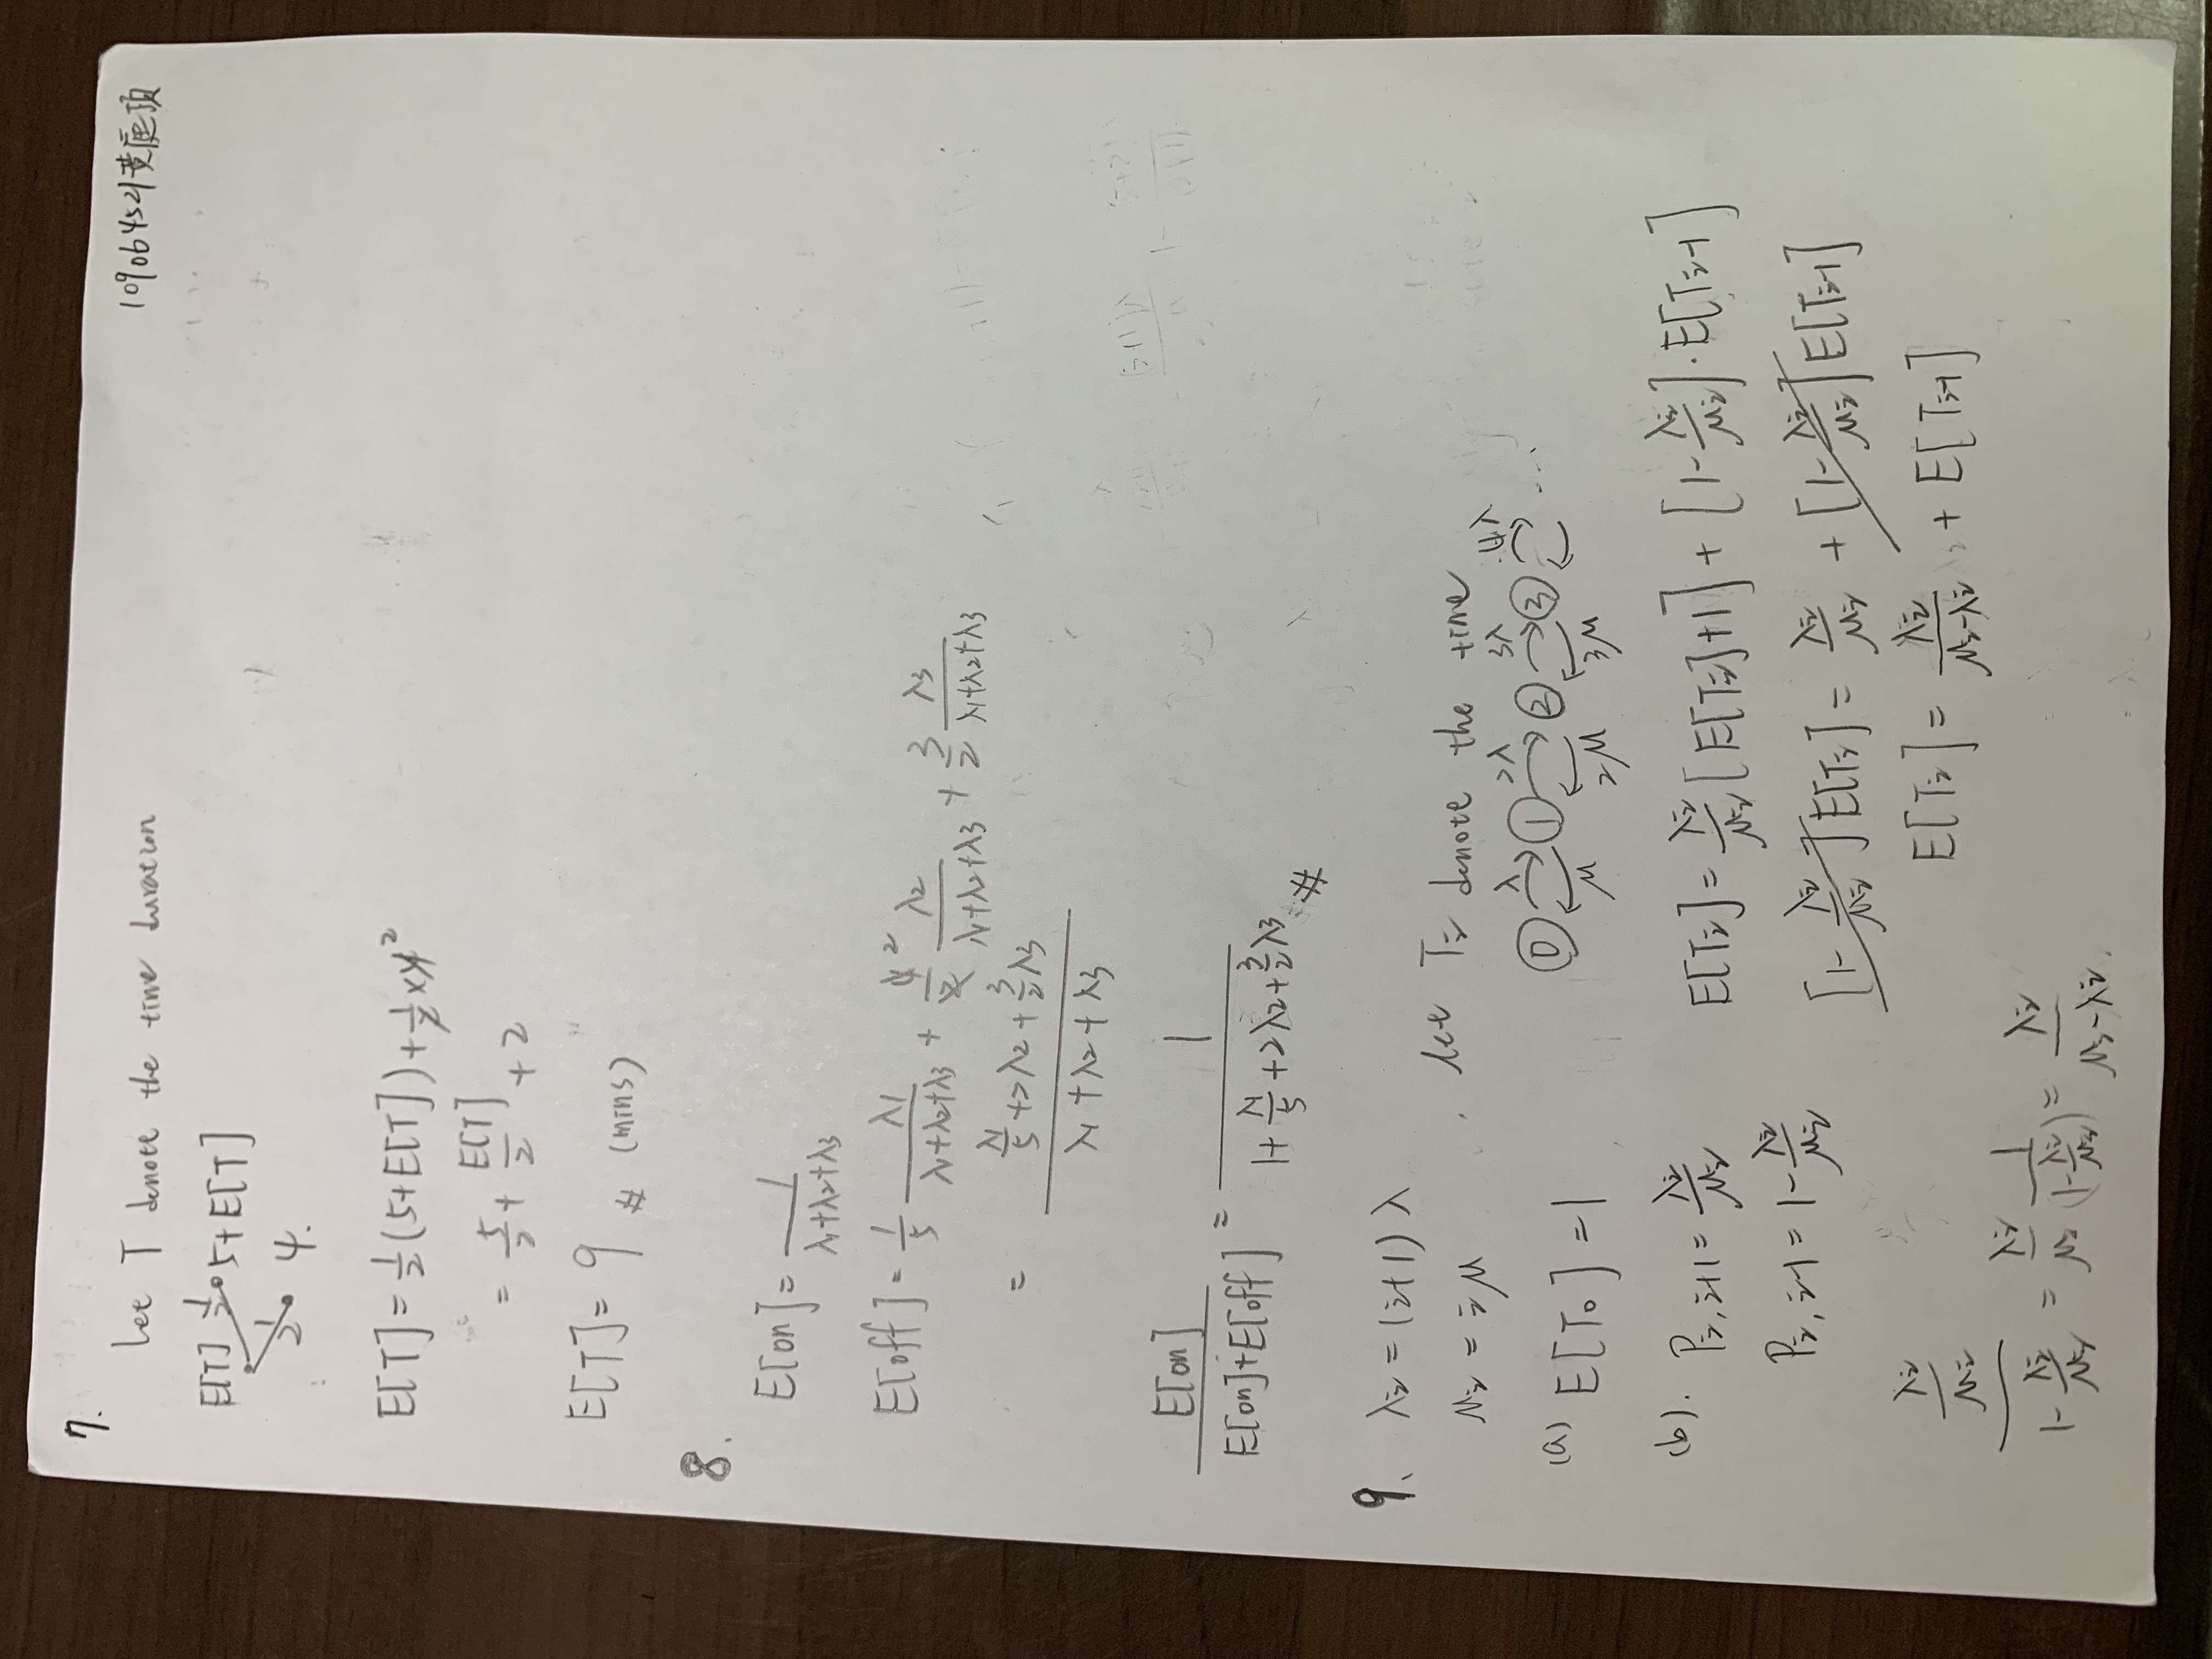 7.
109064521黃庭頊
Let T denote the time duration
E[T] 1/2 5+E[T]
1/2 4.
E[T] = 1/2 (5+E[T]) + 1/2 × 4 2
= 5/2 + E[T]/2 + 2
E[T] = 9 # (mins)
8.
E[on] = 1/(λ1+λ2+λ3)
E[off] = 1/5 λ1/(λ1+λ2+λ3) + 4/2 2 λ2/(λ1+λ2+λ3) + 3/2 λ3/(λ1+λ2+λ3)
= (λ1/5 + 2λ2 + 3/2 λ3)/(λ1+λ2+λ3)
E[on]/(E[on]+E[off]) = 1/(1+ λ1/5 + 2λ2 + 3/2 λ3) #
9. λi = (i+1) λ
μi = iμ
Let Ti denote the time
λ 2λ 3λ 4λ
0 1 2 3 ...
μ 2μ 3μ
(a) E[T0] = 1
(b). Pi,i+1 = λi/μi
Pi,i-1 = 1 - λi/μi
E[Ti] = λi/μi [E[Ti]+1] + [1 - λi/μi] · E[Ti-1]
[1 - λi/μi] E[Ti] = λi/μi + [1 - λi/μi] E[Ti-1]
E[Ti] = λi/(μi-λi) + E[Ti-1]
(λi/μi)/(1 - λi/μi) = λi/μi 1/(1 - λi/μi) = λi/(μi-λi).